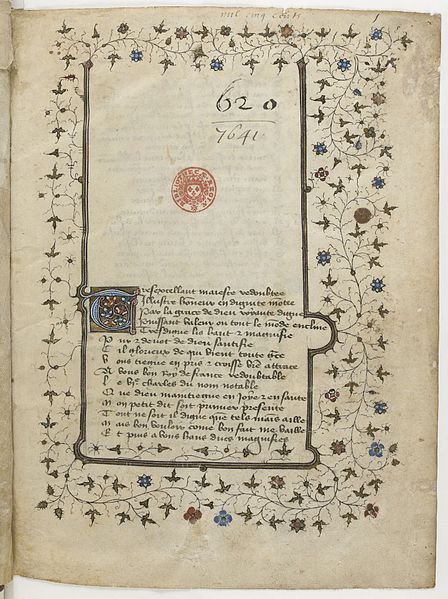 mil cinq cents
1
620
7641.
Tresexcellant maieste redoubtee
Illustre honeur en dignite motee
Par la grace de dieu royaute digne
Puissant valeur ou tout le mode encline
Tresdigne lis hault z magnifie
Pur z devot de dieu saintifie
Cil glorieux de qui vient toute gce
Vous tiegne en pris z croisse attrace
A vous bon Roy de france redoubtable
Le charles du nom notable
Que dieu mantiegne en Joye z en sante
Mon petit dit soit primier presente
Tout ne soit il digne que tels mais aille
Mais bon vouloir come bon fait me vaille
Et puis a vous haus ducs magnifies